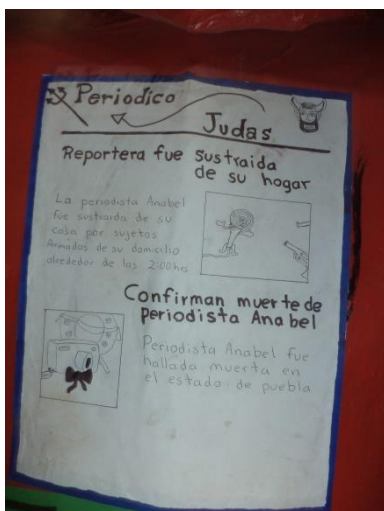 Periodico
Judas
Reportera fue sustraida
de su hogar
La periodista Anabel
fue sustraida de su
casa por sujetos
Armados de su domicilio
alrededor de las 2:00 hrs
Confirman muerte de
periodista Anabel
Periodista Anabel fue
hallada muerta en
el estado de puebla